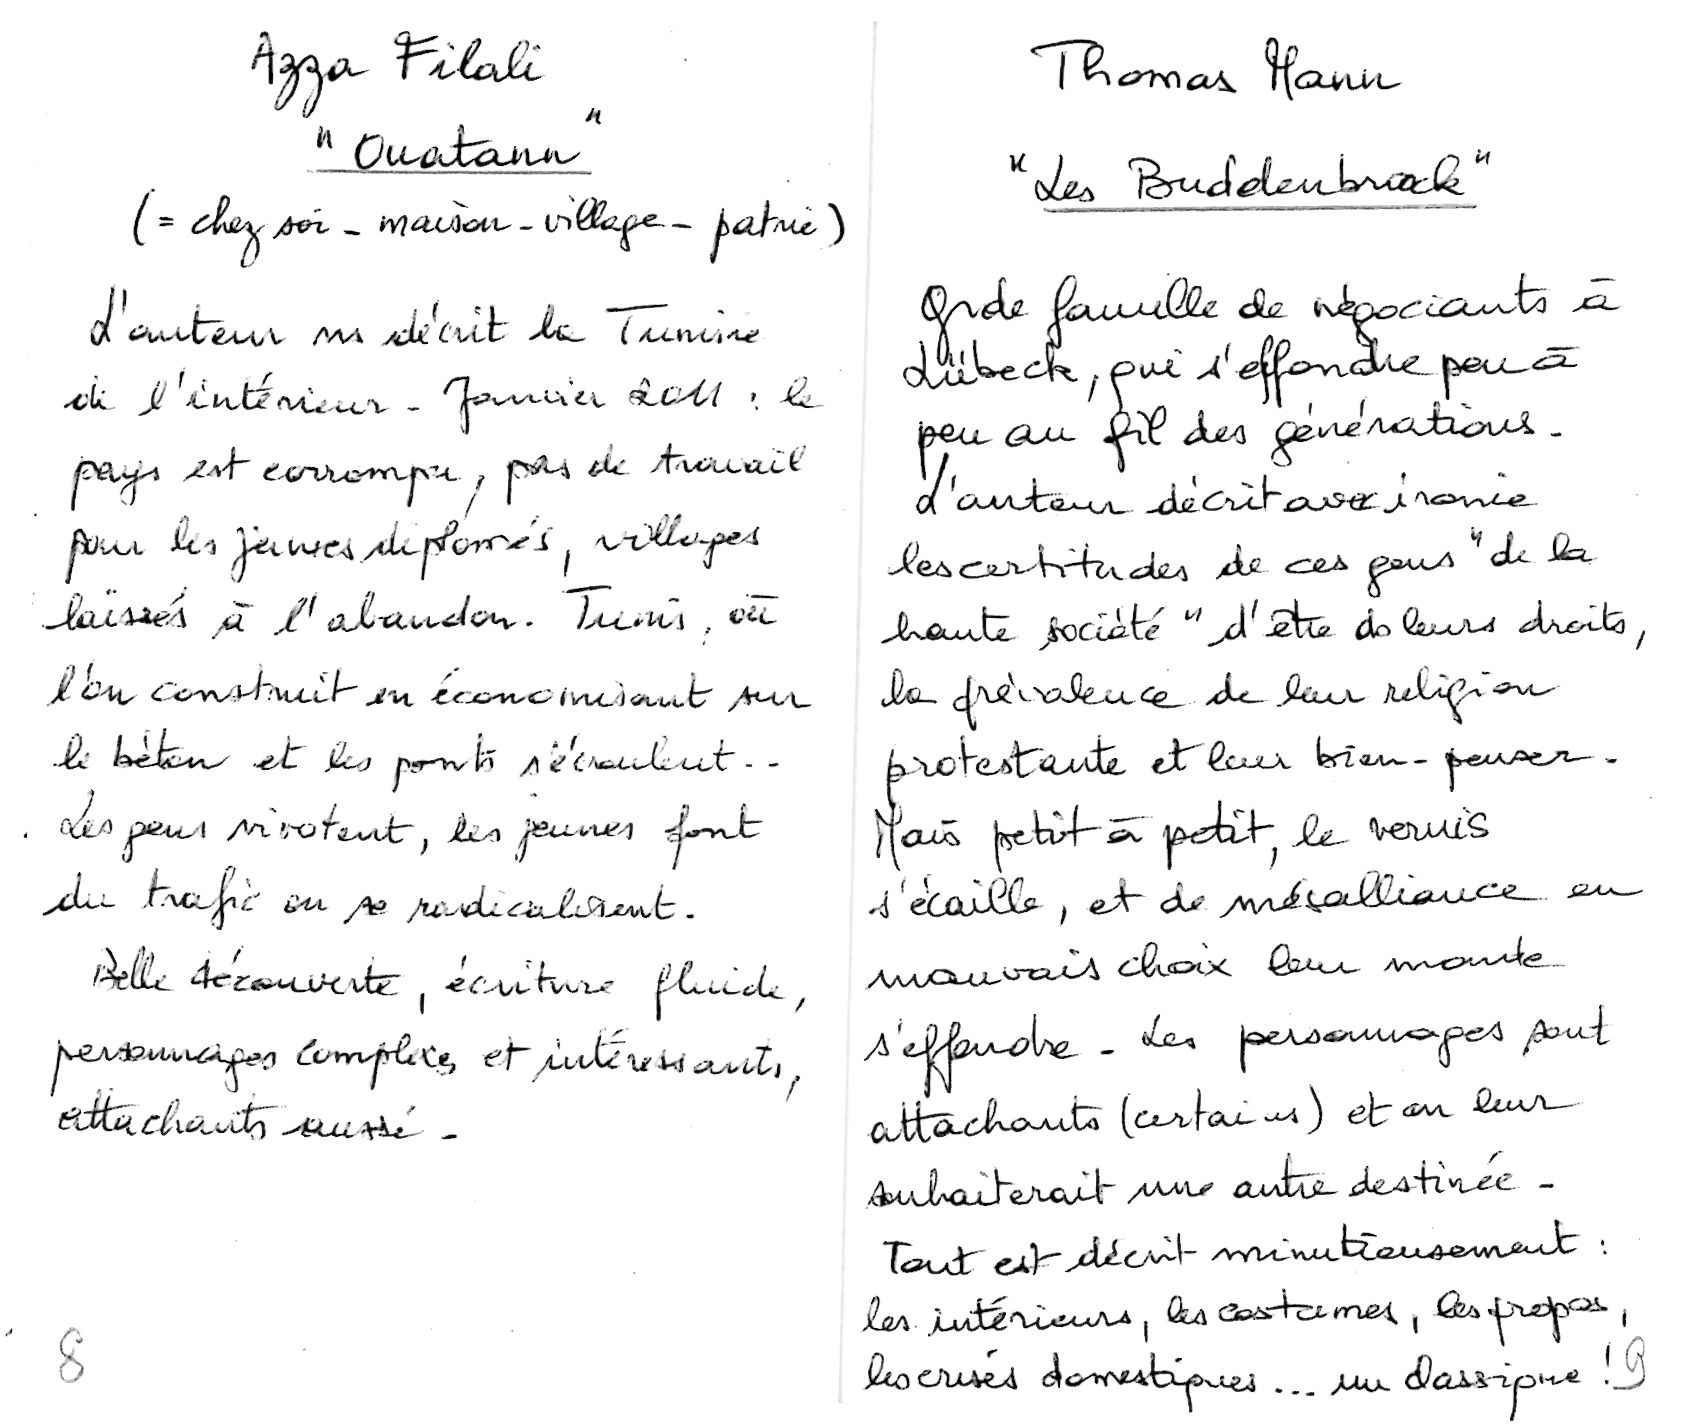 Azza Filali
"Ouatann"
(= chez soi - maison - village - patrie)
L'auteur ns décrit la Tunisie
de l'intérieur - Janvier 2011 : le
pays est corrompu, pas de travail
pour les jeunes diplômés, villages
laissés à l'abandon. Tunis, où
l'on construit en économisant sur
le béton et les ponts s'écroulent..
Les gens vivotent, les jeunes font
du trafic ou se radicalisent.
Belle découverte, écriture fluide,
personnages complexes et intéressants,
attachants aussi -
8
Thomas Mann
"Les Buddenbrook"
Grde famille de négociants à
Lübeck, qui s'effondre peu à
peu au fil des générations -
L'auteur décrit avec ironie
les certitudes de ces gens "de la
haute société" d'être ds leurs droits,
la prévalence de leur religion
protestante et leur bien-penser -
Mais petit à petit, le vernis
s'écaille, et de mésalliance en
mauvais choix leur monde
s'effondre - Les personnages sont
attachants (certains) et on leur
souhaiterait une autre destinée -
Tout est décrit minutieusement :
les intérieurs, les costumes, les propos,
les crises domestiques ... un classique !
9